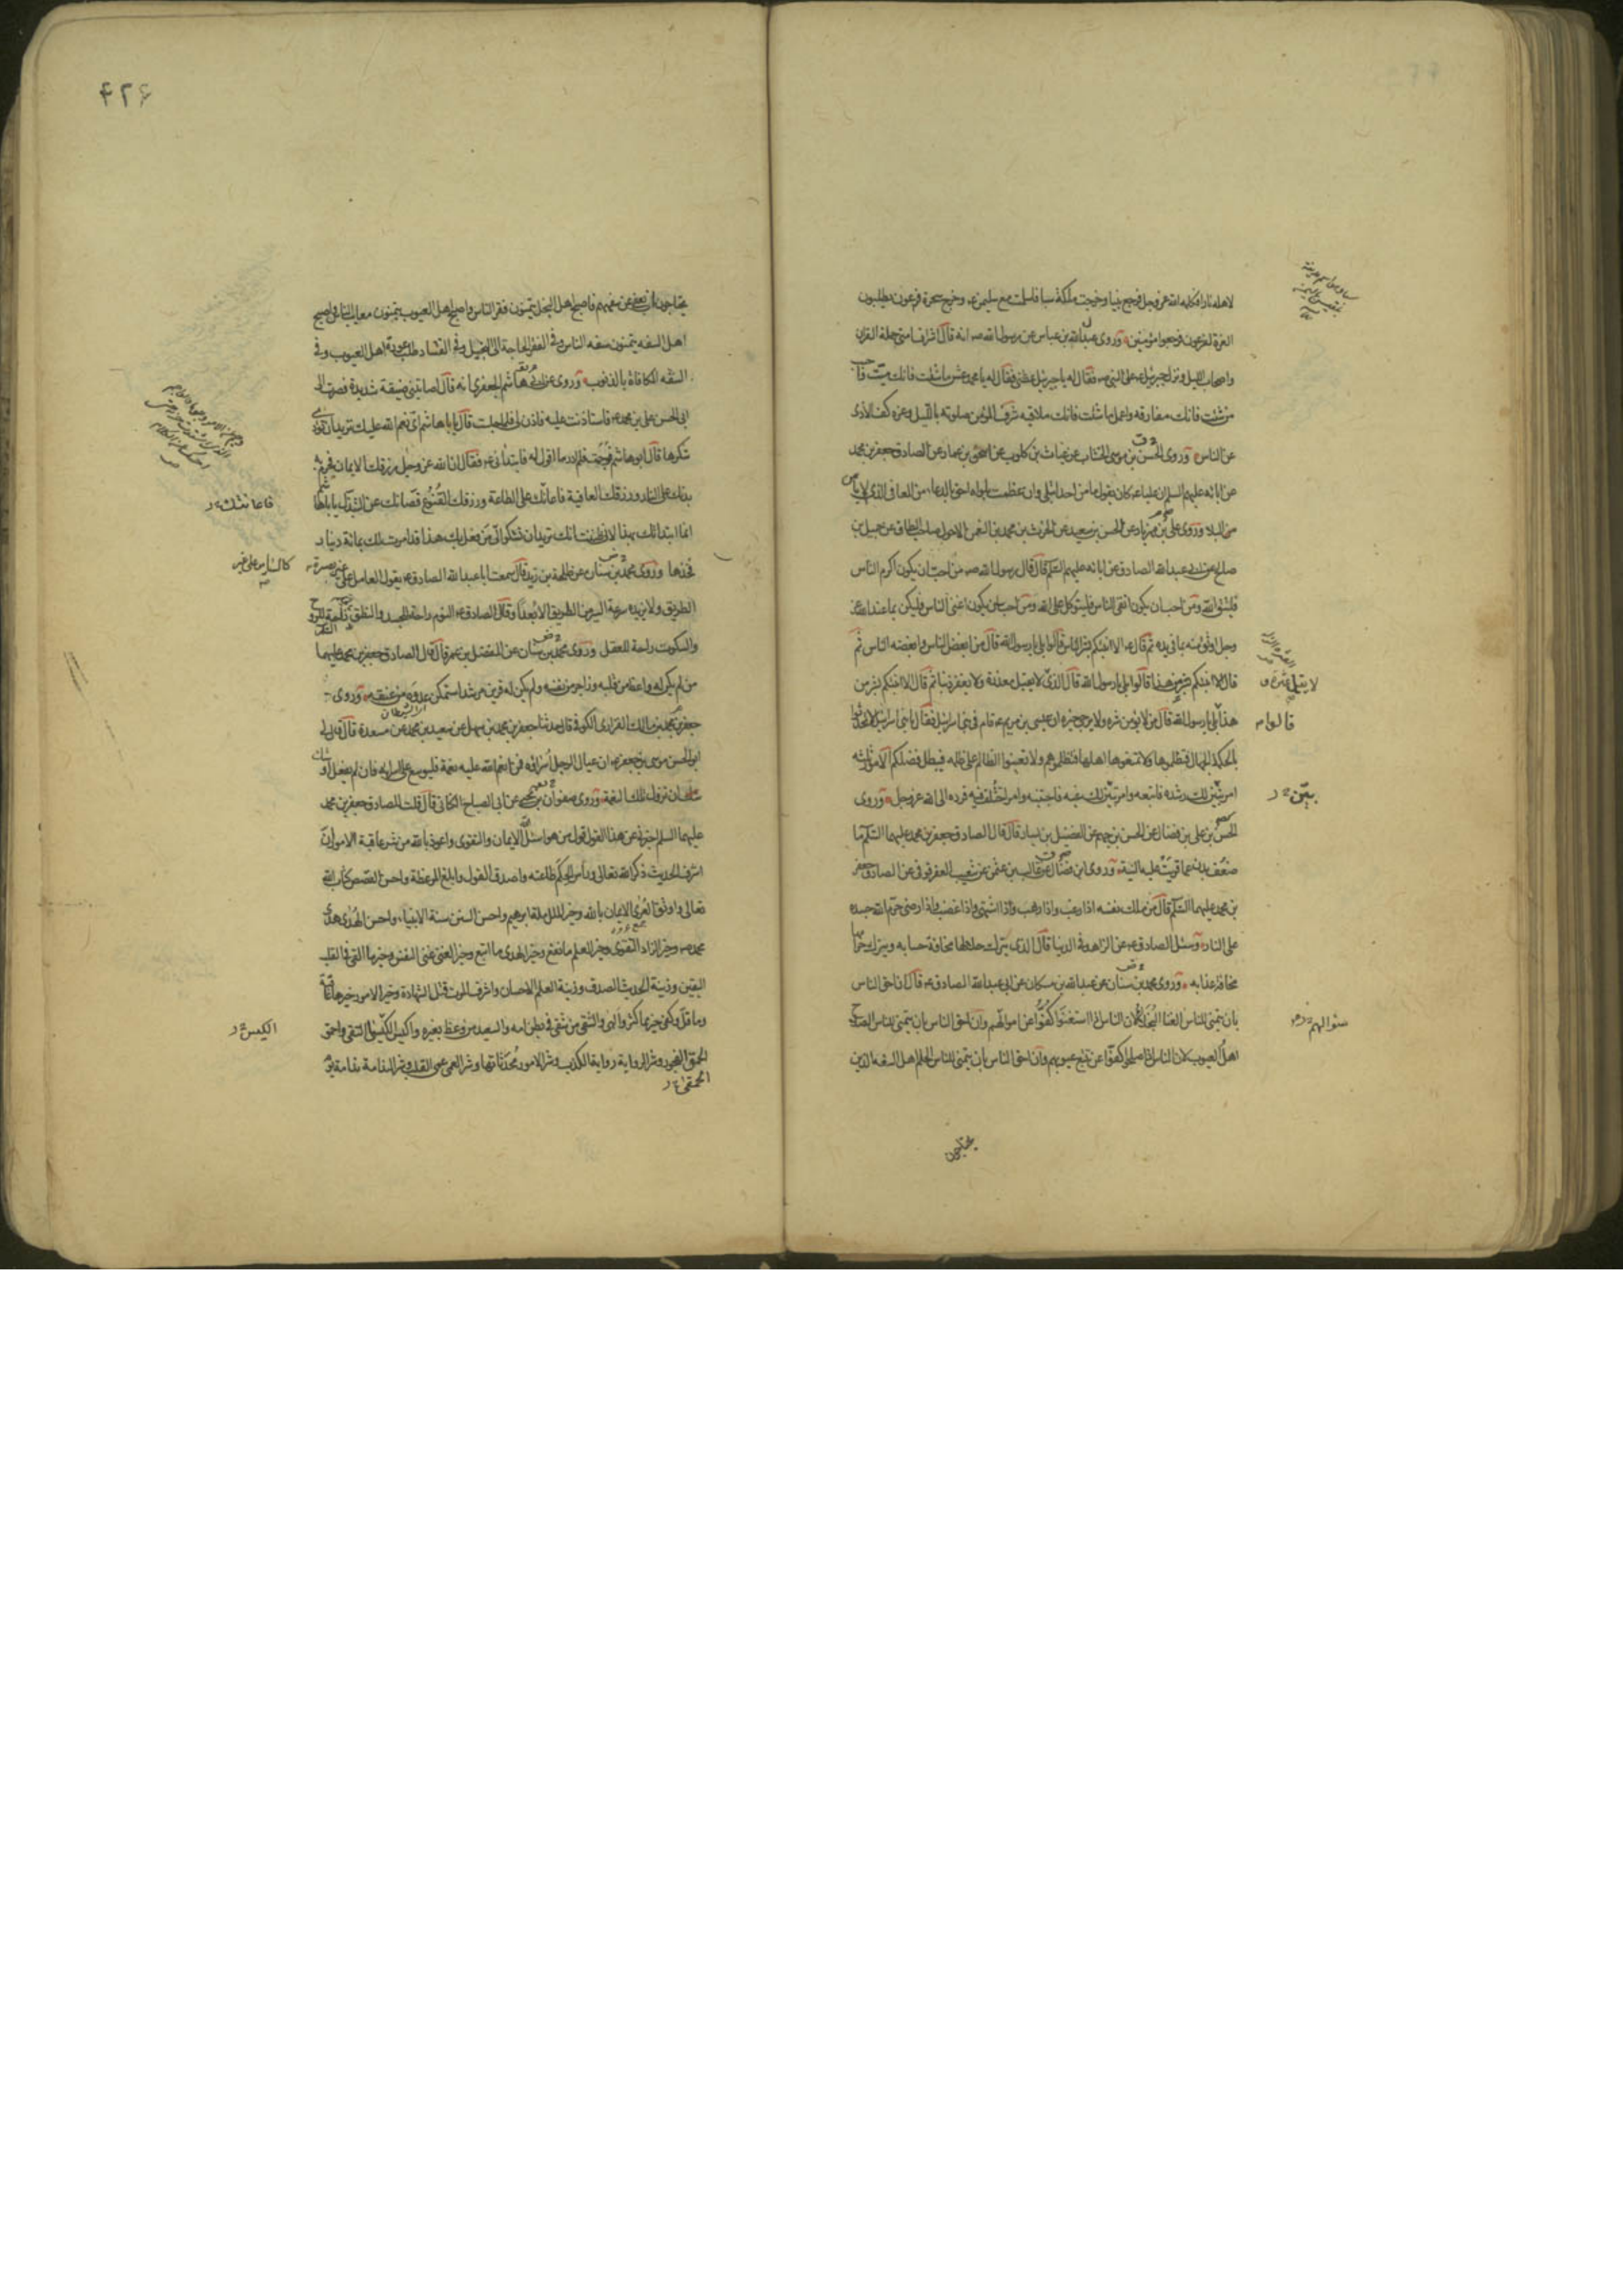 لاهله نارا فكلمه الله عز وجل فرجع نبيا وخرجت ملكة سبا فاسلمت مع سليمن ع وخرج سحرة فرعون يطلبون
العزة لفرعون فرجعوا مؤمنين وروى عبد الله بن عباس عن رسول الله ص انه قال اشراف امتى حملة القران
واصحاب الليل ونزل جبرئيل ع على النبى ص فقال له يا جبرئيل عظنى فقال له يا محمد عش ما شئت فانك ميت واحبب
من شئت فانك مفارقه واعمل ما شئت فانك ملاقيه شرف المؤمن صلوته بالليل وعزه كف الاذى
عن الناس وروى الحسن بن موسى الخشاب عن غياث بن كلوب عن اسحق بن عمار عن الصادق جعفر بن محمد
عن ابائه عليهم السلم ان عليا ع كان يقول ما من احد ابتلى وان عظمت بلواه احق بالدعاء من المعافى الذى لا يامن
من البلاء وروى على بن مهزيار عن الحسن بن سعيد عن الحرث بن محمد بن النعمن الاحول صاحب الطاق عن جميل بن
صلح عن ابى عبد الله الصادق عن ابائه عليهم السلم قال قال رسول الله ص من احب ان يكون اكرم الناس
فليتق الله ومن احب ان يكون اتقى الناس فليتوكل على الله ومن احب ان يكون اغنى الناس فليكن بما عند الله عز
وجل اوثق منه بما فى يده ثم قال ع الا انبئكم بشر الناس قالوا بلى يا رسول الله قال من ابغض الناس وابغضه الناس ثم
قال الا انبئكم بشر من هذا قالوا بلى يا رسول الله قال الذى لا يقيل عثرة ولا يقبل معذرة ولا يغفر ذنبا ثم قال الا انبئكم بشر من
هذا بلى يا رسول الله قال من لا يؤمن شره ولا يرجى خيره ان عيسى بن مريم ع قام فى بنى اسرائيل فقال يا بنى اسرائيل لا تحدثوا
بالحكمة الجهال فتظلموها ولا تمنعوها اهلها فتظلموهم ولا تعينوا الظالم على ظلمه فيبطل فضلكم الامور ثلثة
امر تبين لك رشده فاتبعه وامر تبين لك غيه فاجتنبه وامر اختلف فيه فرده الى الله عز وجل وروى
الحسن بن على بن فضال عن الحسن بن جهم عن الفضيل بن يسار قال قال الصادق جعفر بن محمد عليهما السلم ما
ضعف بدن عما قويت عليه النية وروى ابن فضال عن غالب بن عثمن عن شعيب العقرقوفى عن الصادق جعفر
بن محمد عليهما السلم قال من ملك نفسه اذا رغب واذا رهب واذا اشتهى واذا غضب واذا رضى حرم الله جسده
على النار وسئل الصادق ع عن الزاهد فى الدنيا قال الذى يترك حلالها مخافة حسابه ويترك حرامها
مخافة عذابه وروى محمد بن سنان عن عبد الله بن مسكان عن ابى عبد الله الصادق ع قال ان احق الناس
بان يتمنى للناس الغنا البخلاء لان الناس اذا استغنوا كفوا عن اموالهم وان احق الناس بان يتمنى للناس الصلاح
اهل العيوب لان الناس اذا صلحوا كفوا عن تتبع عيوبهم وان احق الناس بان يتمنى للناس الحلم اهل السفه الذين
قالوا
بين
سؤالهم
٤٢٦
يحتاجون ان يعفى عن سفههم فاصبح اهل البخل يتمنون فقر الناس واصبح اهل العيوب يتمنون معايب الناس واصبح
اهل السفه يتمنون سفه الناس وفى الفقر الحاجة الى البخيل وفى الفساد طلب عورة اهل العيوب وفى
السفه المكافاة بالذنوب وروى عن ابى هاشم الجعفرى انه قال اصابتنى ضيقة شديدة فصرت الى
ابى الحسن على بن محمد ع فاستاذنت عليه فاذن لى فلما جلست قال يا با هاشم اى نعم الله عليك تريد ان تؤدى
شكرها قال ابو هاشم فوجمت فلم ادر ما اقول له فابتدأنى ع فقال ان الله عز وجل رزقك الايمان فحرم به
بدنك على النار ورزقك العافية فاعانك على الطاعة ورزقك القنوع فصانك عن التبذل يا با هاشم
انما ابتدأتك بهذا لانى ظننت انك تريد ان تشكو الى من فعل بك هذا قد امرت لك بمائة دينار
فخذها وروى محمد بن سنان عن طلحة بن زيد قال سمعت ابا عبد الله الصادق ع يقول العامل على غير بصيرة
الطريق ولا يزيده سرعة السير من الطريق الا بعدا وقال الصادق ع النوم راحة للجسد والنطق راحة للروح
والسكوت راحة للعقل وروى محمد بن سنان عن المفضل بن عمر قال قال الصادق جعفر بن محمد عليهما
من لم يكن له واعظ من قلبه وزاجر من نفسه ولم يكن له قرين مرشد استمكن عدوه من عنقه وروى
جعفر بن محمد بن مالك الفزارى الكوفى قال حدثنا جعفر بن محمد بن سهل عن سعيد بن محمد عن مسعدة قال قال لى
ابو الحسن موسى بن جعفر ع ان عيال الرجل اسراؤه فمن انعم الله عليه نعمة فليوسع على اسرائه فان لم يفعل اوشك
ان تزول تلك النعمة وروى صفوان بن يحيى عن ابى الصباح الكنانى قال قلت للصادق جعفر بن محمد
عليهما السلم اخبرنى عن هذا القول قول من هو اسئل الله الايمان والتقوى واعوذ بالله من شر عاقبة الامور ان
اشرف الحديث ذكر الله تعالى وراس الحكم طاعته واصدق القول وابلغ الموعظة واحسن القصص كتاب الله
تعالى واوثق العرى الايمان بالله وخير الملل ملة ابرهيم واحسن السنن سنة الانبياء واحسن الهدى هدى
محمد ص وخير الزاد التقوى وخير العلم ما نفع وخير الهدى ما اتبع وخير الغنى غنى النفس وخير ما القى فى القلب
اليقين وزينة الحديث الصدق وزينة العلم الاحسان واشرف الموت قتل الشهادة وخير الامور خيرها عاقبة
وما قل وكفى خير مما كثر والهى والشقى من شقى فى بطن امه والسعيد من وعظ بغيره واكيس الكيس التقى واحمق
الحمق الفجور وشر الرواية رواية الكذب وشر الامور محدثاتها وشر العمى عمى القلب وشر الندامة ندامة يوم
فاعانتك
كالسائر على غير
الكيس